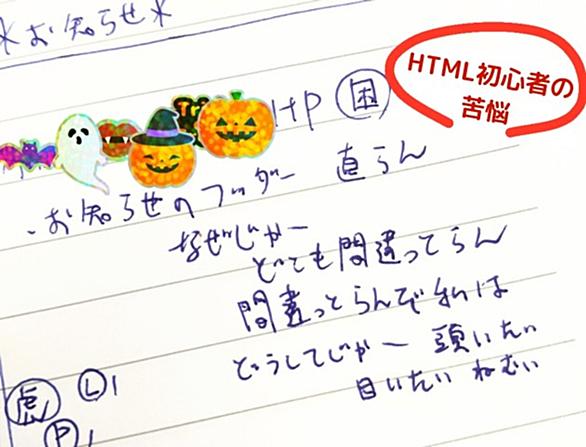 *お知らせ*
HP 困
HTML初心者の
苦悩
・お知らせのフッター 直らん
なぜじゃー
どこも間違ってらん
間違っとらんで私は
どうしてじゃー 頭いたい
目いたい ねむい
虎 L 1
P 1